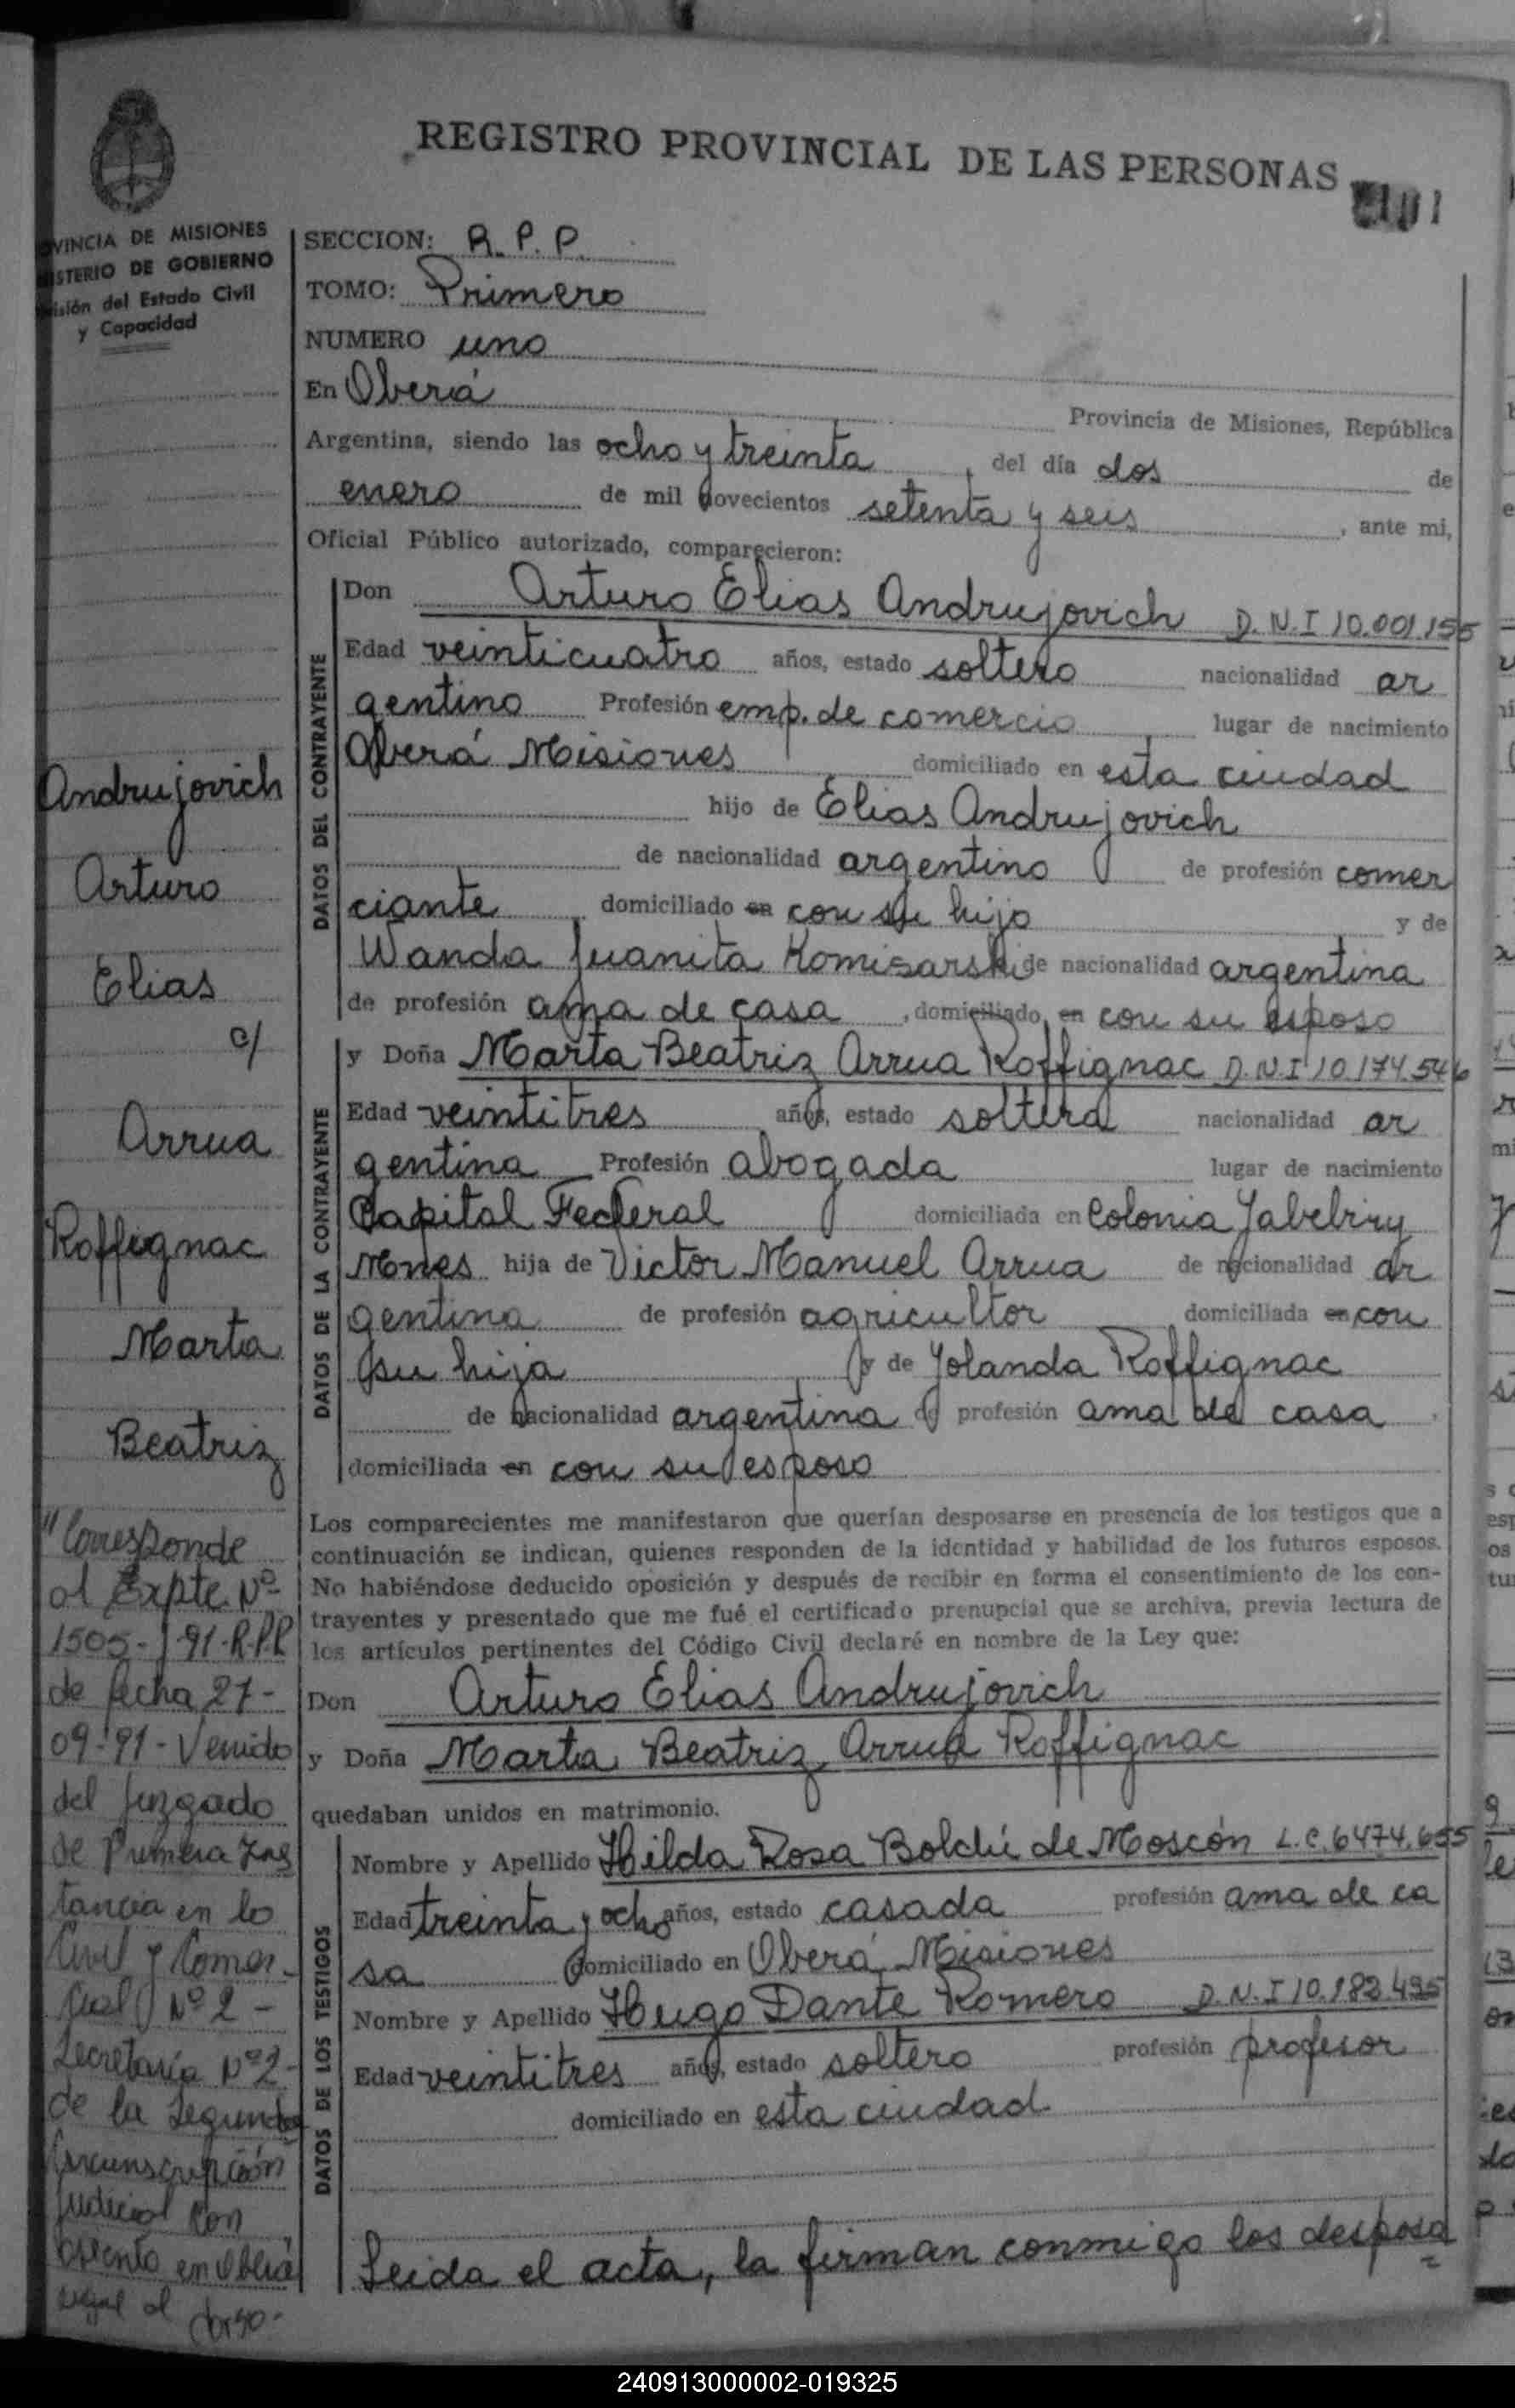 REGISTRO PROVINCIAL DE LAS PERSONAS
VINCIA DE MISIONES
ISTERIO DE GOBIERNO
isión del Estado Civil
y Capacidad
SECCION: R.P.P.
TOMO: Primero
NUMERO uno
En Oberá Provincia de Misiones, República
Argentina, siendo las ocho y treinta, del día dos de
enero de mil novecientos setenta y seis, ante mi,
Oficial Público autorizado, comparecieron:
DATOS DEL CONTRAYENTE
Don Arturo Elias Andrujovich D.N.I 10.001.155
Edad veinticuatro años, estado soltero nacionalidad ar
gentino Profesión emp. de comercio, lugar de nacimiento
Oberá Misiones domiciliado en esta ciudad
hijo de Elias Andrujovich
de nacionalidad argentino de profesión comer
ciante, domiciliado en con su hijo y de
Wanda Juanita Komisarski de nacionalidad argentina
de profesión ama de casa, domiciliado en con su esposo
DATOS DE LA CONTRAYENTE
y Doña Marta Beatriz Arrua Roffignac D.N.I 10.174.546
Edad veintitres años, estado soltera nacionalidad ar
gentina Profesión abogada lugar de nacimiento
Capital Federal domiciliada en Colonia Yabebiry
Mnes hija de Victor Manuel Arrua de nacionalidad ar
gentina de profesión agricultor domiciliada en con
su hija y de Yolanda Roffignac
de nacionalidad argentina de profesión ama de casa
domiciliada en con su esposo
Los comparecientes me manifestaron que querían desposarse en presencia de los testigos que a
continuación se indican, quienes responden de la identidad y habilidad de los futuros esposos.
No habiéndose deducido oposición y después de recibir en forma el consentimiento de los con-
trayentes y presentado que me fué el certificado prenupcial que se archiva, previa lectura de
los artículos pertinentes del Código Civil declaré en nombre de la Ley que:
Don Arturo Elias Andrujovich
y Doña Marta Beatriz Arrua Roffignac
quedaban unidos en matrimonio.
DATOS DE LOS TESTIGOS
Nombre y Apellido Hilda Rosa Bolchi de Moscón L.C. 6474.655
Edad treinta y ocho años, estado casada profesión ama de ca
sa domiciliado en Oberá Misiones
Nombre y Apellido Hugo Dante Romero D.N.I 10.182.495
Edad veintitres años, estado soltero profesión profesor
domiciliado en esta ciudad
Leida el acta, la firman conmigo los desposa
Andrujovich
Arturo
Elias
c/
Arrua
Roffignac
Marta
Beatriz
"Corresponde
al Expte Nº
1505-/91-R.P.P.
de fecha 27-
09-91-Venido
del Juzgado
de Primera Ins
tancia en lo
Civil y Comer-
cial Nº 2-
Secretaría Nº 2-
de la Segunda
Circunscripción
Judicial con
asiento en Oberá
sigue al dorso-
240913000002-019325